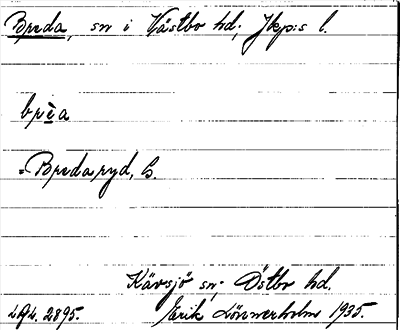 Breda, sn i Västbo hd, Jkp:s l.
brēa
= Bredaryd, B.
Kävsjö sn; Östbo hd.
Erik Lönnerholm 1935.